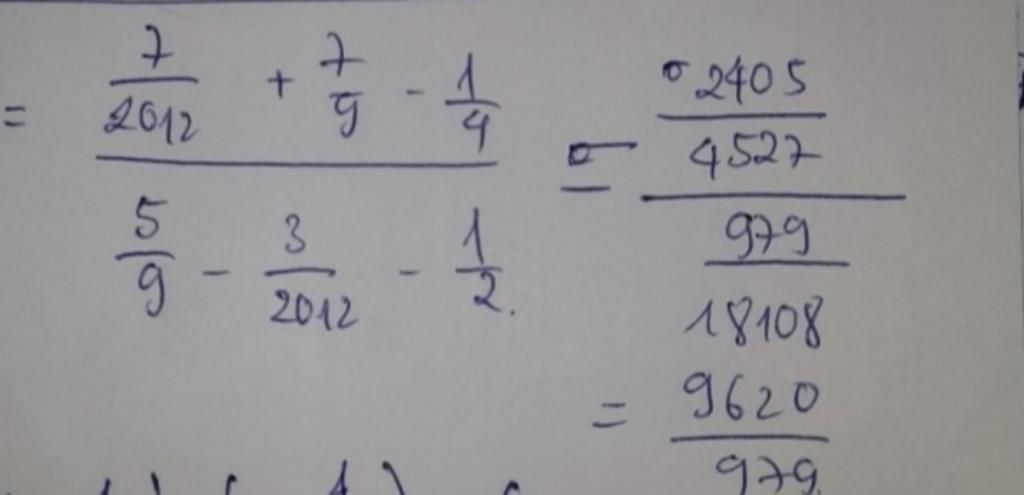 = (7/2012 + 7/9 - 1/4) / (5/9 - 3/2012 - 1/2.) = (2405/4527) / (979/18108)
= 9620/979